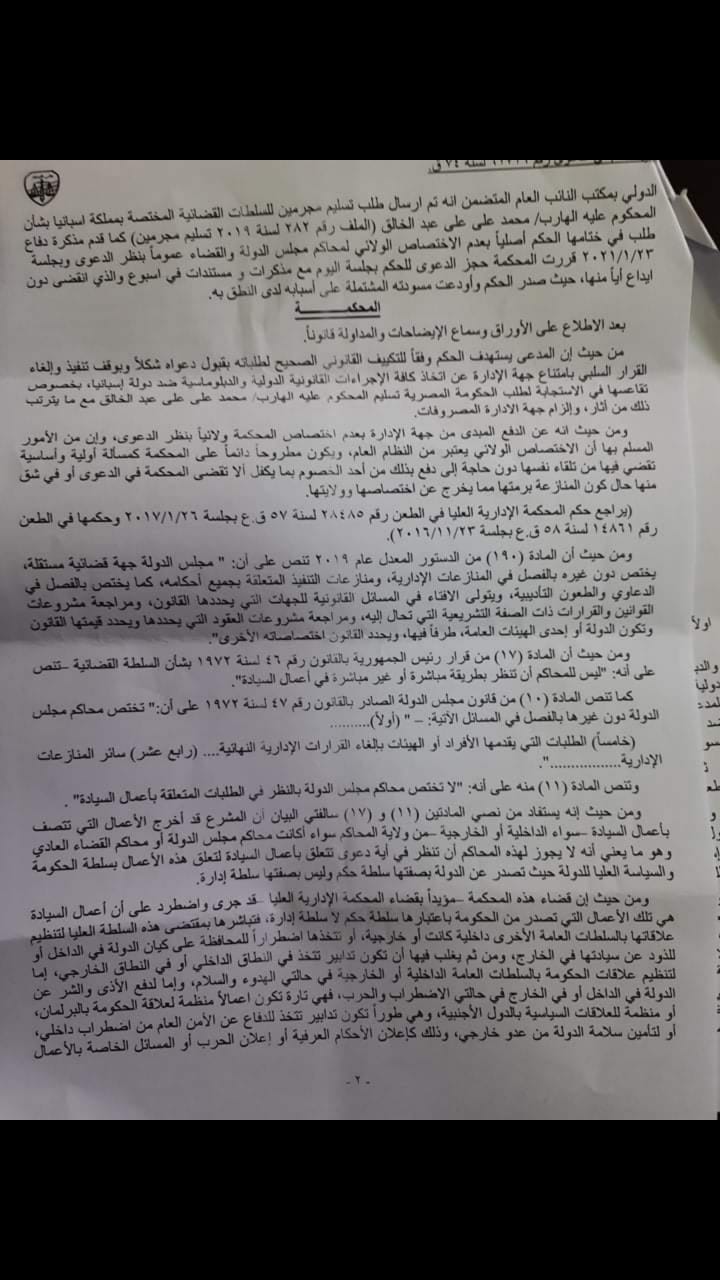 لسنة ٧٤ ق.
الدولي بمكتب النائب العام المتضمن انه تم ارسال طلب تسليم مجرمين للسلطات القضائية المختصة بمملكة اسبانيا بشأن
المحكوم عليه الهارب/ محمد على على عبد الخالق (الملف رقم ٢٨٢ لسنة ٢٠١٩ تسليم مجرمين) كما قدم مذكرة دفاع
طلب في ختامها الحكم أصلياً بعدم الاختصاص الولائي لمحاكم مجلس الدولة والقضاء عموماً بنظر الدعوى وبجلسة
٢٠٢١/١/٢٣ قررت المحكمة حجز الدعوى للحكم بجلسة اليوم مع مذكرات و مستندات في اسبوع والذي انقضى دون
ايداع أياً منها، حيث صدر الحكم وأودعت مسودته المشتملة على أسبابه لدى النطق به.
المحكمــــــــة
بعد الاطلاع على الأوراق وسماع الإيضاحات والمداولة قانوناً.
من حيث إن المدعى يستهدف الحكم وفقاً للتكييف القانوني الصحيح لطلباته بقبول دعواه شكلاً وبوقف تنفيذ وإلغاء
القرار السلبي بامتناع جهة الإدارة عن اتخاذ كافة الإجراءات القانونية الدولية والدبلوماسية ضد دولة إسبانيا، بخصوص
تقاعسها في الاستجابة لطلب الحكومة المصرية تسليم المحكوم عليه الهارب/ محمد على على عبد الخالق مع ما يترتب
ذلك من أثار، وإلزام جهة الادارة المصروفات.
ومن حيث انه عن الدفع المبدى من جهة الإدارة بعدم اختصاص المحكمة ولائياً بنظر الدعوى، وإن من الأمور
المسلم بها أن الاختصاص الولائي يعتبر من النظام العام، ويكون مطروحاً دائماً على المحكمة كمسألة أولية وأساسية
تقضي فيها من تلقاء نفسها دون حاجة إلى دفع بذلك من أحد الخصوم بما يكفل ألا تقضى المحكمة في الدعوى أو في شق
منها حال كون المنازعة برمتها مما يخرج عن اختصاصها وولايتها.
(يراجع حكم المحكمة الإدارية العليا في الطعن رقم ٢٨٤٨٥ لسنة ٥٧ ق.ع بجلسة ٢٠١٧/١/٢٦ وحكمها في الطعن
رقم ١٤٨٦١ لسنة ٥٨ ق.ع بجلسة ٢٠١٦/١١/٢٣).
ومن حيث أن المادة (١٩٠) من الدستور المعدل عام ٢٠١٩ تنص على أن: " مجلس الدولة جهة قضائية مستقلة،
يختص دون غيره بالفصل في المنازعات الإدارية، ومنازعات التنفيذ المتعلقة بجميع أحكامه، كما يختص بالفصل في
الدعاوي والطعون التأديبية، ويتولى الافتاء في المسائل القانونية للجهات التي يحددها القانون، ومراجعة مشروعات
القوانين والقرارات ذات الصفة التشريعية التي تحال إليه، ومراجعة مشروعات العقود التي يحددها ويحدد قيمتها القانون
وتكون الدولة أو إحدى الهيئات العامة، طرفاً فيها، ويحدد القانون اختصاصاته الأخرى".
ومن حيث أن المادة (١٧) من قرار رئيس الجمهورية بالقانون رقم ٤٦ لسنة ١٩٧٢ بشأن السلطة القضائية –تنص
على أنه: "ليس للمحاكم أن تنظر بطريقة مباشرة أو غير مباشرة في أعمال السيادة".
كما تنص المادة (١٠) من قانون مجلس الدولة الصادر بالقانون رقم ٤٧ لسنة ١٩٧٢ على أن:" تختص محاكم مجلس
الدولة دون غيرها بالفصل في المسائل الآتية: – " (أولاً)..........
(خامساً) الطلبات التي يقدمها الأفراد أو الهيئات بإلغاء القرارات الإدارية النهائية.... (رابع عشر) سائر المنازعات
الإدارية.................".
وتنص المادة (١١) منه على أنه: "لا تختص محاكم مجلس الدولة بالنظر في الطلبات المتعلقة بأعمال السيادة" .
ومن حيث إنه يستفاد من نصي المادتين (١١) و (١٧) سالفتي البيان أن المشرع قد أخرج الأعمال التي تتصف
بأعمال السيادة –سواء الداخلية أو الخارجية –من ولاية المحاكم سواء أكانت محاكم مجلس الدولة أو محاكم القضاء العادي
وهو ما يعني أنه لا يجوز لهذه المحاكم أن تنظر في أية دعوى تتعلق بأعمال السيادة لتعلق هذه الأعمال بسلطة الحكومة
والسياسة العليا للدولة حيث تصدر عن الدولة بصفتها سلطة حكم وليس بصفتها سلطة إدارة.
ومن حيث إن قضاء هذه المحكمة –مؤيداً بقضاء المحكمة الإدارية العليا –قد جرى واضطرد على أن أعمال السيادة
هي تلك الأعمال التي تصدر من الحكومة باعتبارها سلطة حكم لا سلطة إدارة، فتباشرها بمقتضى هذه السلطة العليا لتنظيم
علاقاتها بالسلطات العامة الأخرى داخلية كانت أو خارجية، أو تتخذها اضطراراً للمحافظة على كيان الدولة في الداخل أو
للذود عن سيادتها في الخارج، ومن ثم يغلب فيها أن تكون تدابير تتخذ في النطاق الداخلي أو في النطاق الخارجي، إما
لتنظيم علاقات الحكومة بالسلطات العامة الداخلية أو الخارجية في حالتي الهدوء والسلام، وإما لدفع الأذى والشر عن
الدولة في الداخل أو في الخارج في حالتي الاضطراب والحرب، فهي تارة تكون اعمالاً منظمة لعلاقة الحكومة بالبرلمان،
أو منظمة للعلاقات السياسية بالدول الأجنبية، وهي طوراً تكون تدابير تتخذ للدفاع عن الأمن العام من اضطراب داخلي،
أو لتأمين سلامة الدولة من عدو خارجي، وذلك كإعلان الأحكام العرفية أو إعلان الحرب أو المسائل الخاصة بالأعمال
- ٢ -
اولاً